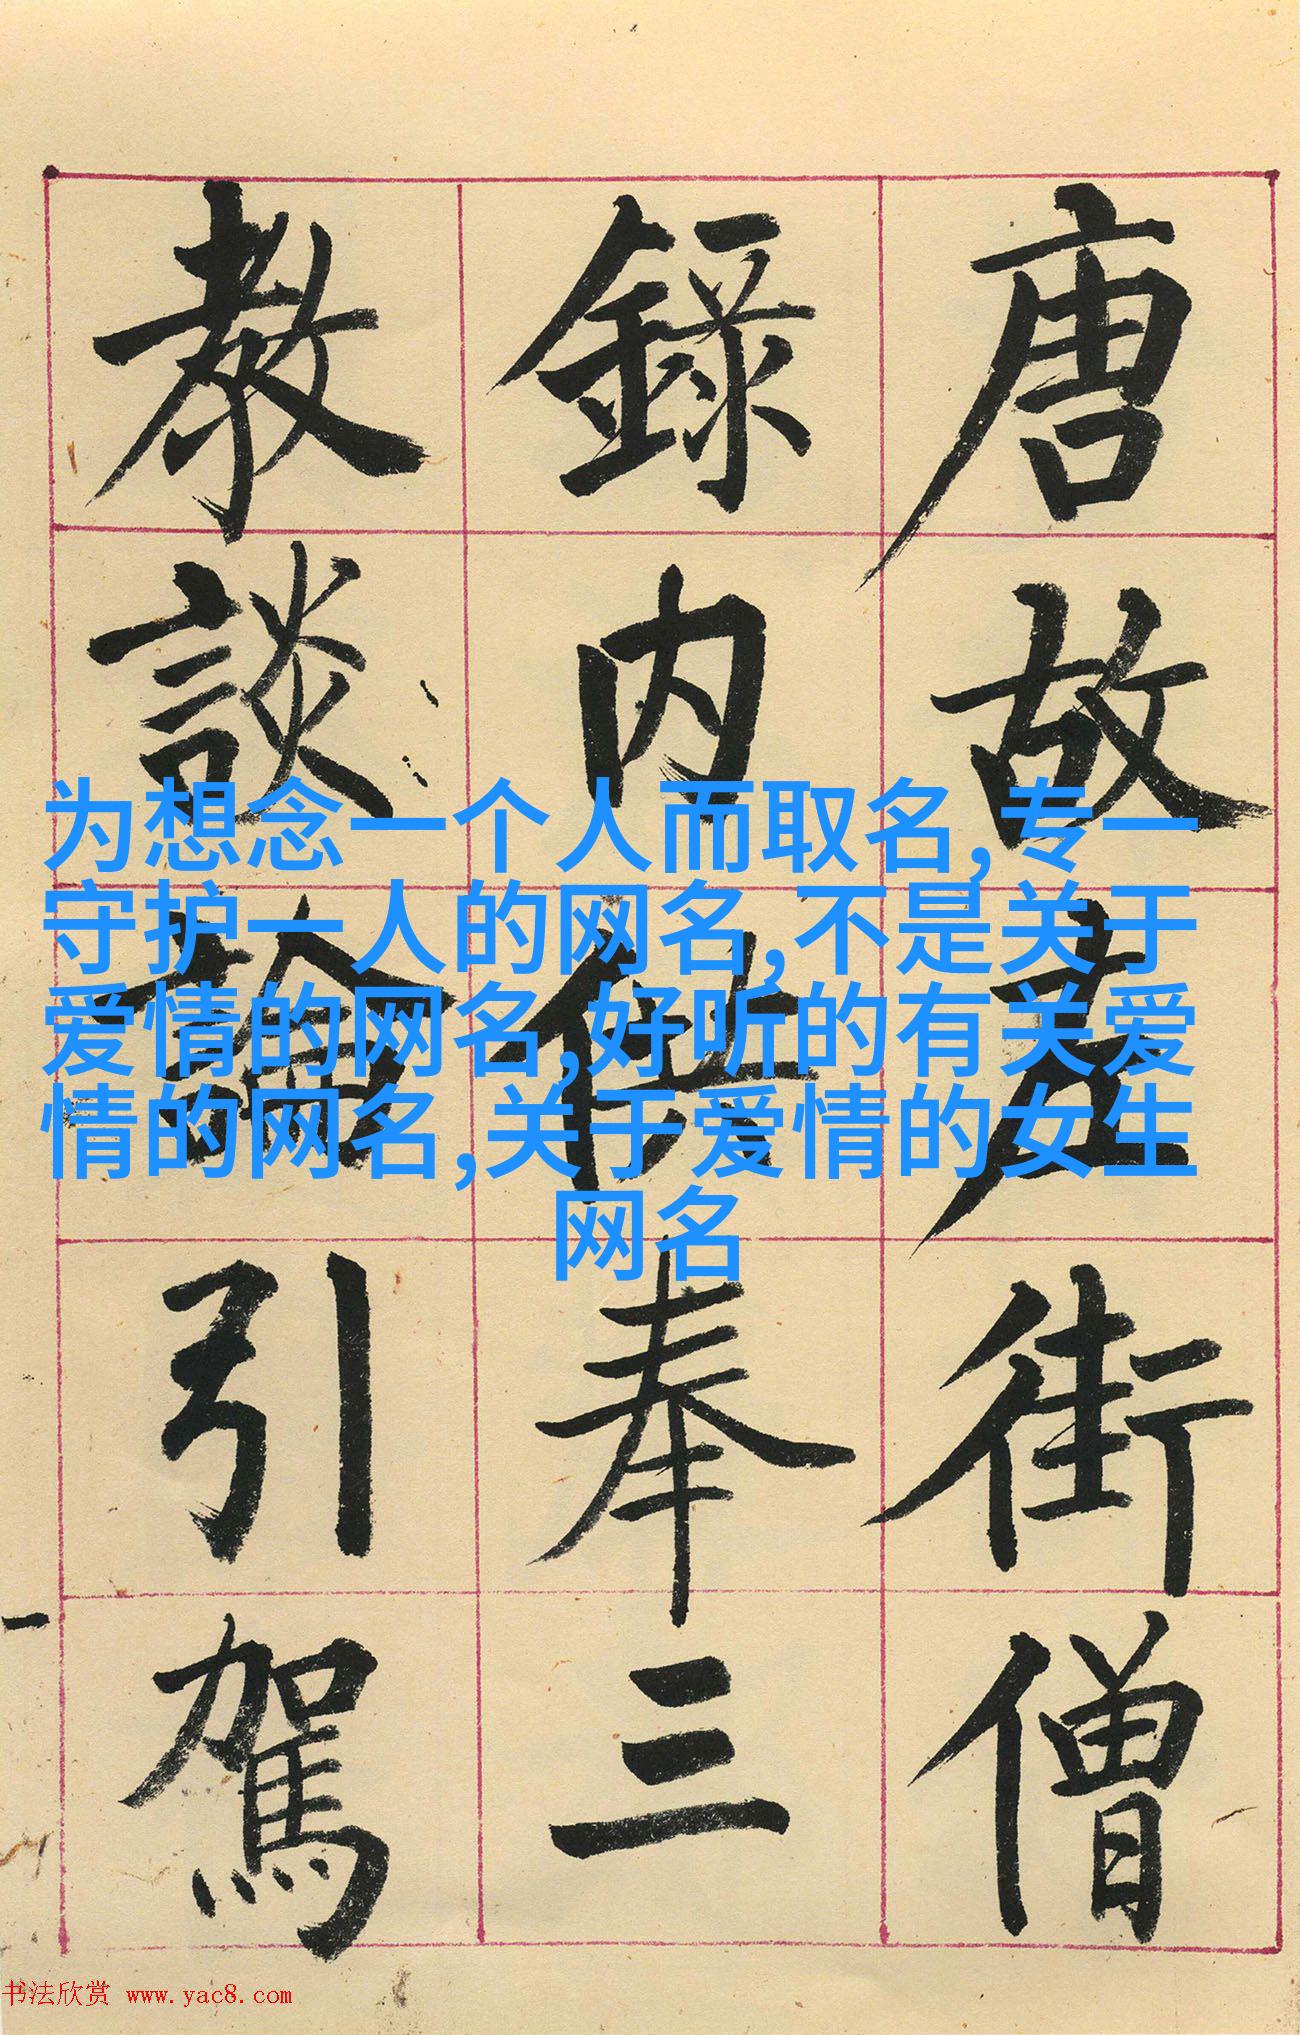 唐故左街僧
錄内供奉三
教談論引駕
为想念一个人而取名,专一
守护一人的网名,不是关于
爱情的网名,好听的有关爱
情的网名,关于爱情的女生
网名
书法欣赏 www.yac8.com